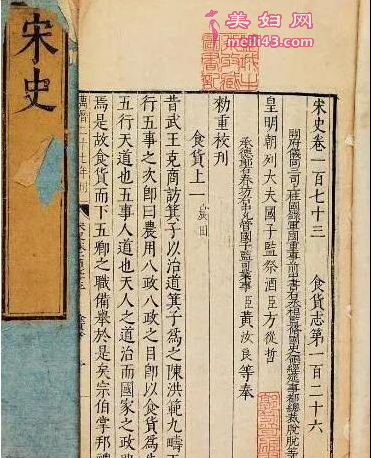 美妇网
meili43.com
宋史
宋史卷一百七十三 食貨志第一百二十六
開府儀同三司上柱國錄軍國重事前中書右丞相監脩國史領經筵事都總裁脫脫等
皇明朝列大夫國子監祭酒臣方從哲
承德郎右春坊右中允管國子監司業事臣黃汝良等奉
勅重校刊
食貨上一 農田
昔武王克商訪箕子以治道箕子爲之陳洪範九疇
行五事之次即曰農用八政八政之目即以食貨爲
五行天道也五事人道也天人之道治而國家之政
焉是故食貨而下五卿之職備舉於是矣宗伯掌邦禮
萬曆二十七年刊